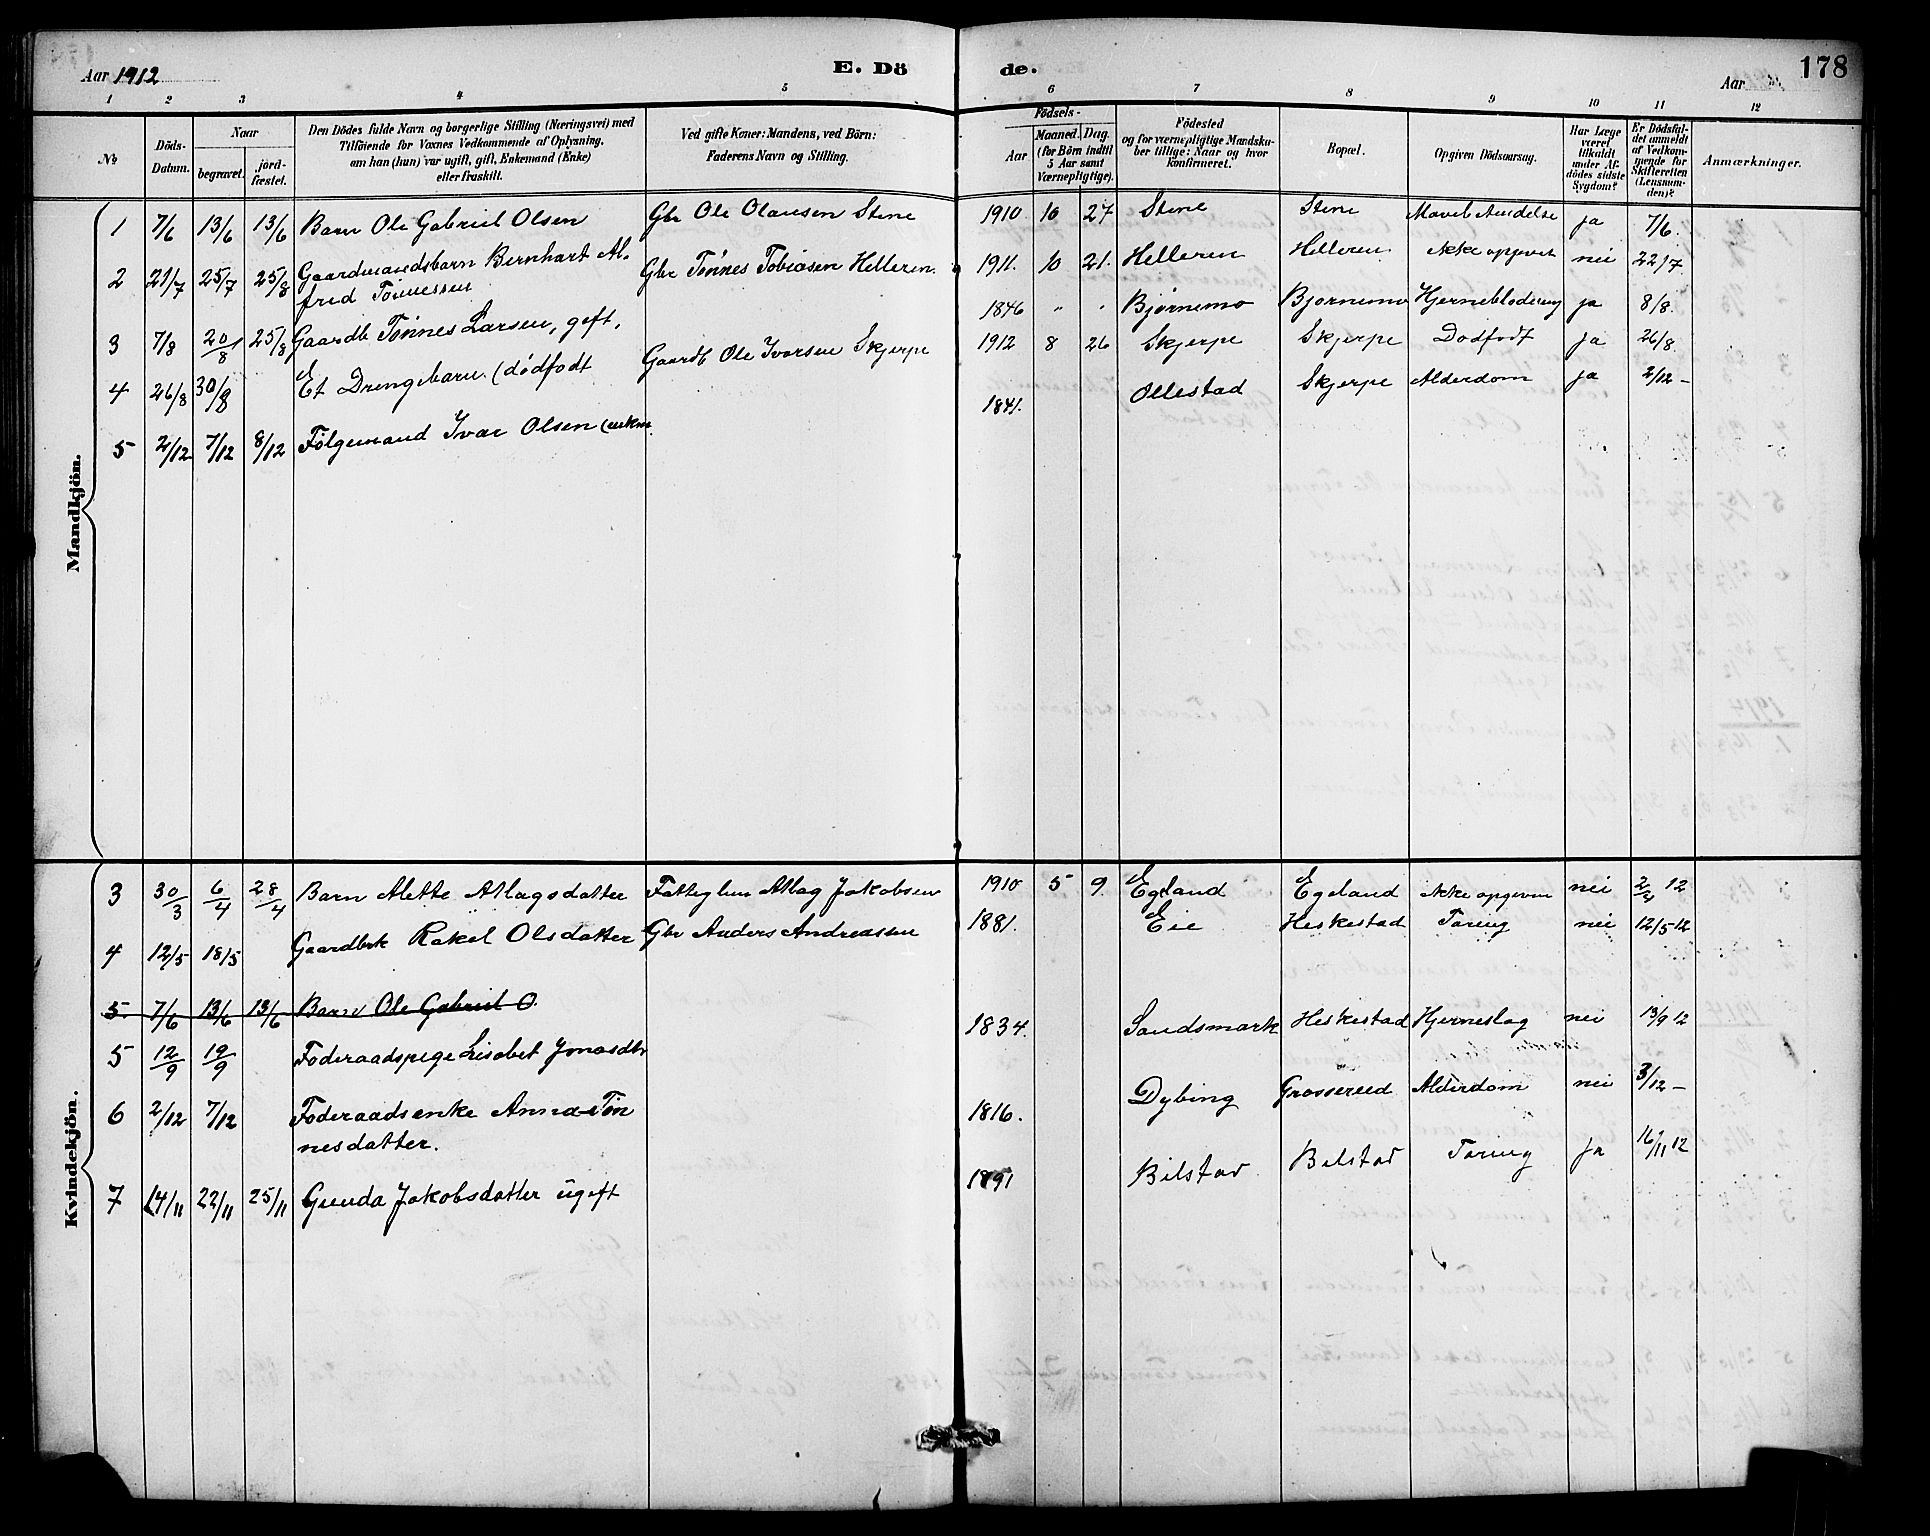 Aar 1912
E. Dö
de.
Aar
178
1 2 3 4 5 6 7 8 9 10 11 12
№
Döds-Datum.
Naar
begravet.
jord-fæstet.
Den Dödes fulde Navn og borgerlige Stilling (Næringsvei) med
Tilföiende for Voxnes Vedkommende af Oplysning,
om han (hun) var ugift, gift, Enkemand (Enke)
eller fraskilt.
Ved gifte Koner: Mandens, ved Börn:
Faderens Navn og Stilling.
Födsels-
Aar
Maaned.
Dag.
(for Börn indtil
5 Aar samt
Værnepligtige).
Födested
og for værnepligtige Mandsku-
ber tillige: Naar og hvor
konfirmeret.
Bopæl.
Opgiven Dödsaarsag.
Har Læge
været
tilkaldt
under Af-
dödes sidste
Sygdom?
Er Dödsfal-
det anmeldt
af Vedkom-
mende for
Skifteretten
(Lensman-
den)?
Anmærkninger.
Mandkjön.
1 7/6 13/6 13/6 Barn Ole Gabriel Olsen Gbr Ole Olausen Stene 1910 10 27 Stene Stene ja 7/6.
2 21/7 25/7 25/8 Gaardmandsbarn Bernhart Al-
fred Tönnessen Gbr Tönnes Tobiasen Helleren. 1911. 10 21. Helleren Helleren ikke opgivet nei 22/7
3 7/8 20/8 25/8 Gaardb Tönnes Larsen, gift. 1846 " " Bjørnemo Bjørnemo Hjerneblødning ja 8/8.
4 26/8 30/8 Et Drengebarn (dødfødt Gaardb Ole Ivarsen Skjerpe 1912 8 26 Skjerpe Skjerpe Dødfødt ja 26/8
5 2/12 7/12 8/12 Følgemand Ivar Olsen (enkm. 1841. Ollestad Skjerpe Alderdom ja 2/12 –
Kvindekjön.
3 30/3 6/4 28/4 Barn Alette Atlagsdatter Fattiglem Atlag Jakobsen 1910 5 9 Egeland Egeland ikke opgiven nei 2/4 12
4 12/5 18/5 Gaardbrk Rakel Olsdatter Gbr Anders Andreassen 1881. Eie Heskestad Tæring nei 12/5 12
5 7/6 13/6 13/6 Barn Ole Gabriel O.
5 12/9 19/9 Føderaadspige Lisabet Jonasdtr 1834. Sandsmark Heskestad Hjerneslag nei 13/9 12
6 2/12 7/12 Føderaadsenke Anna Tøn
nesdatter. 1816. Dybing Grossereed Alderdom nei 3/12 –
7 14/11 22/11 25/11 Gunda Jakobsdatter ugift 1891 Bilstad Bilstad Tæring ja 16/11 12